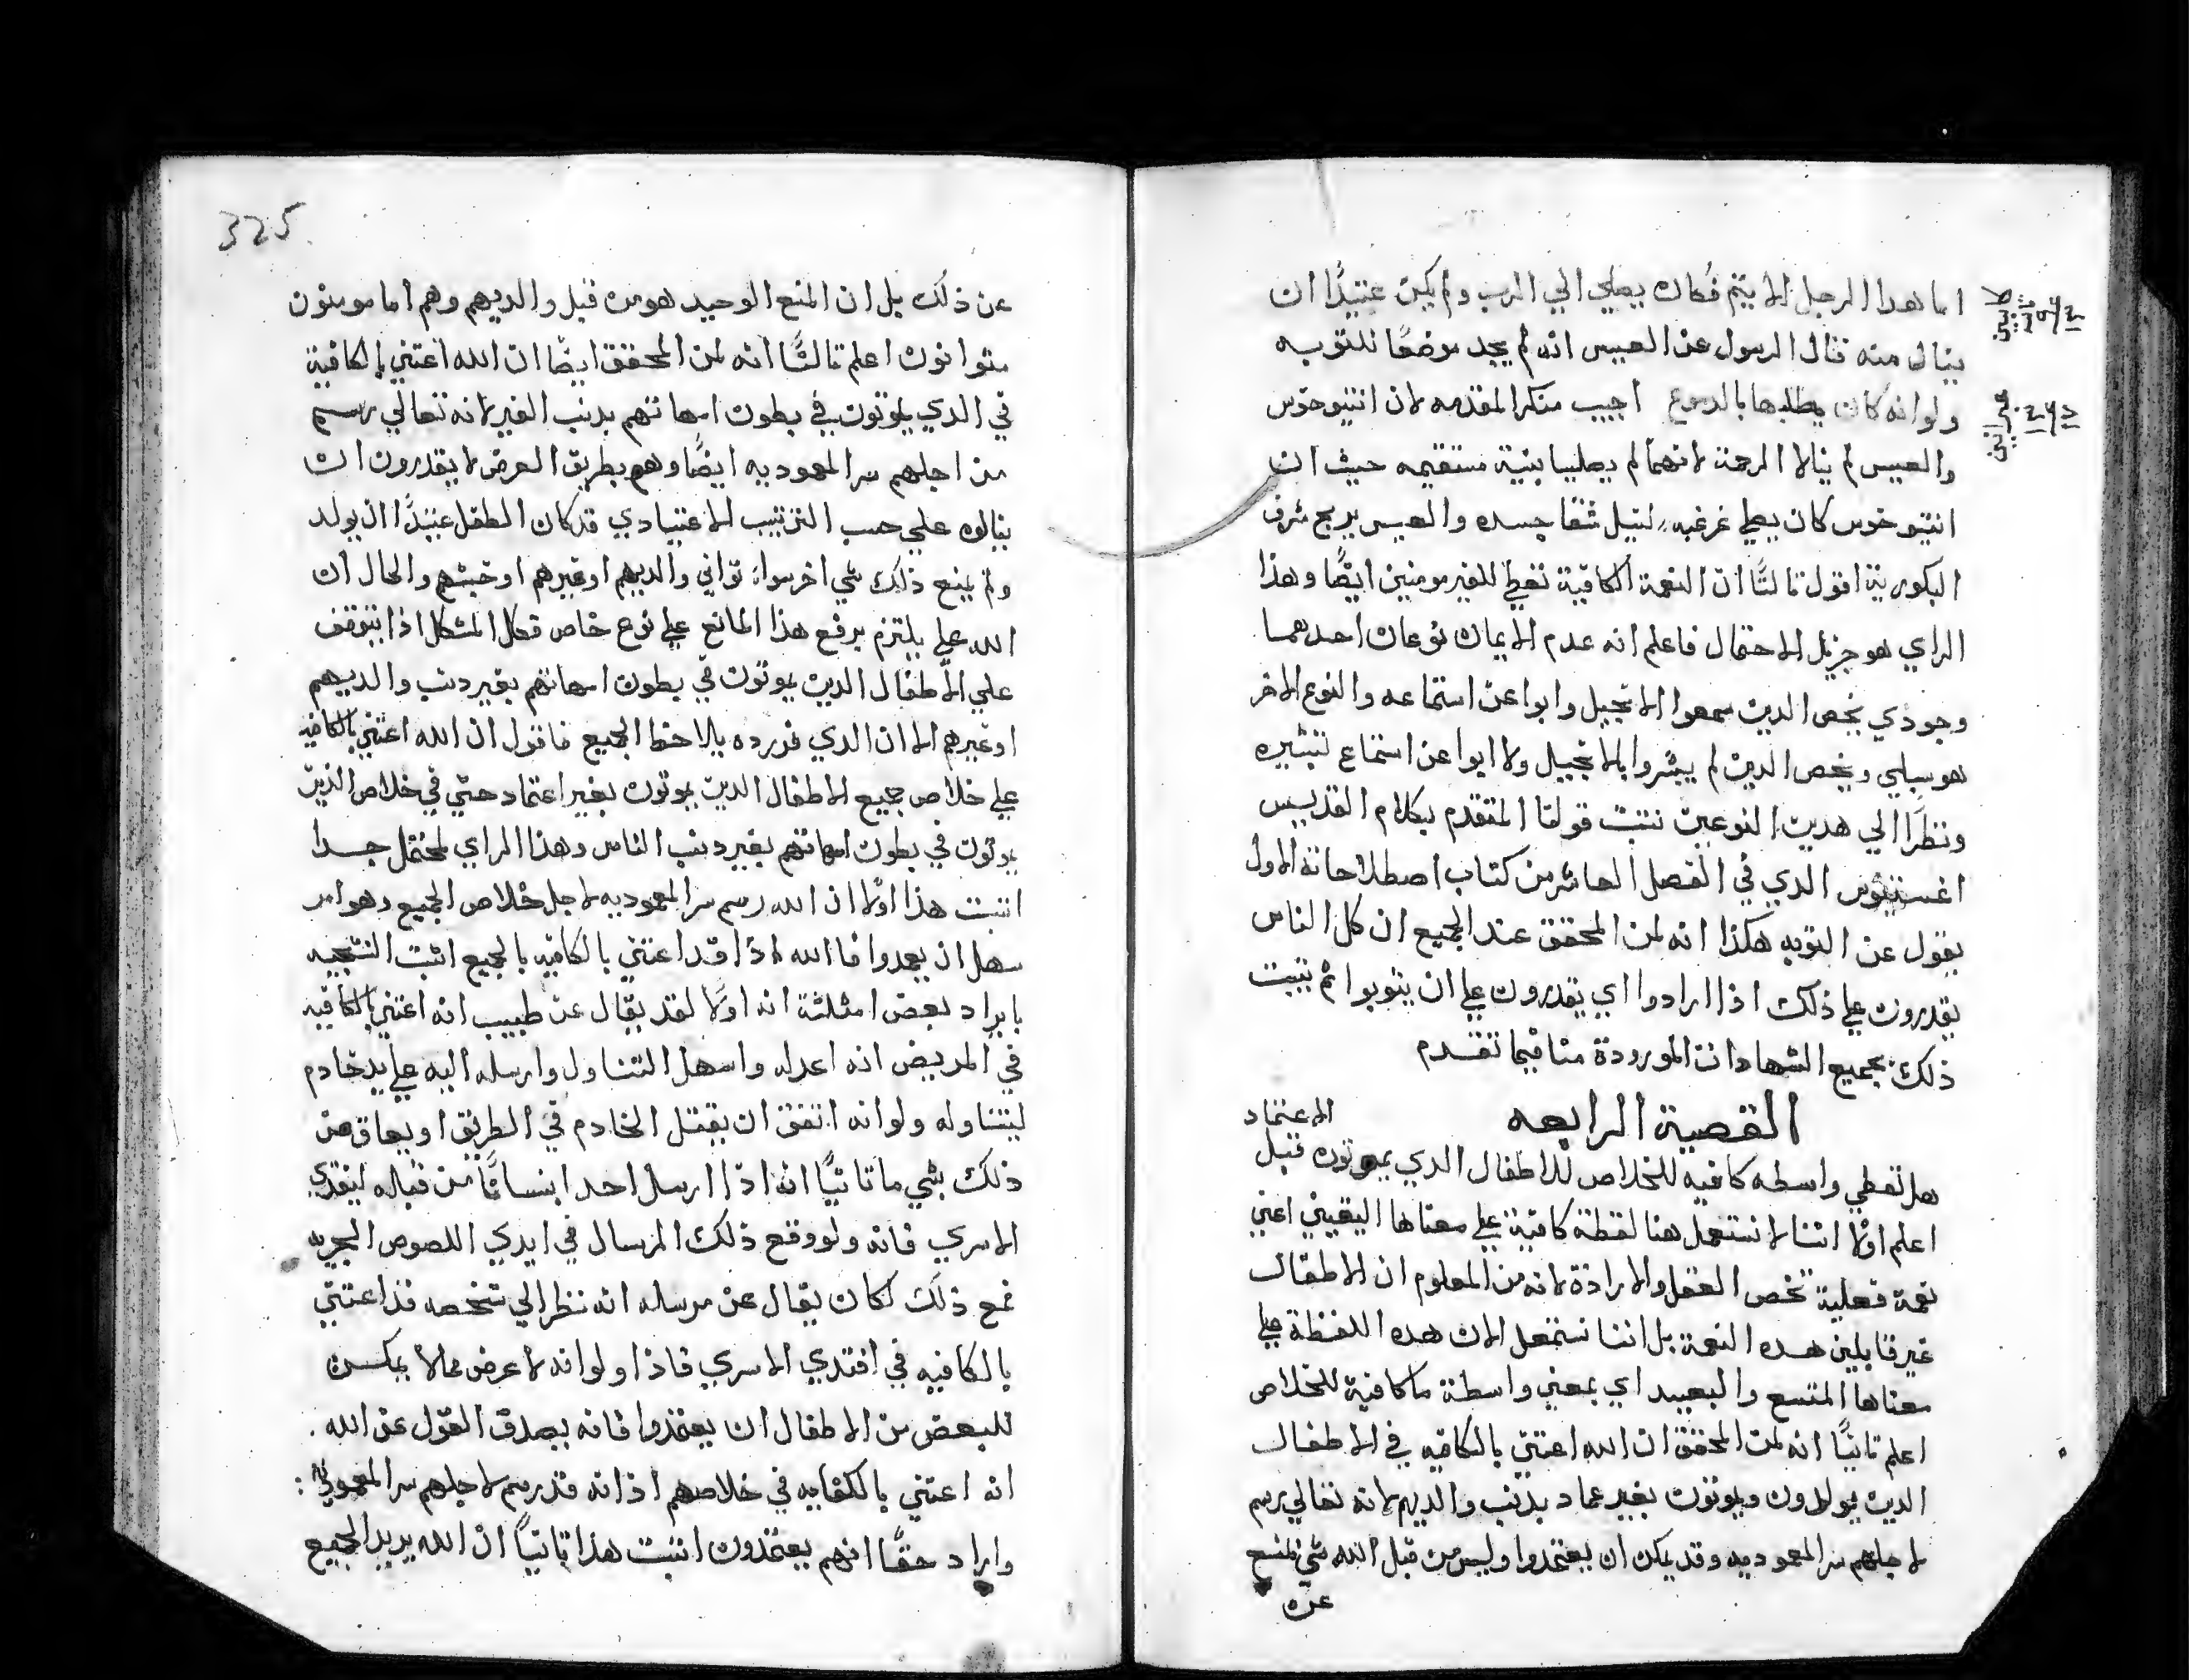 اما هدا الرجل الاثيم فكان يصلي الي الرب ولم يكن عتيدًا ان
ينال منه قال الرسول عن العيس انه لم يجد موضعًا للتوبه
ولو انه كان يطلبها بالدموع اجيب منكرا المقدمه لان انتيوخوس
والعيس لم ينالا الرحمة لانهما لم يصليا بنية مستقيمه حيث ان
انتيوخوس كان يصلي غرغبه لنيل شفا جسده والعيس يربح شرف
البكورية اقول ثالثًا ان النعمة الكافية تعطي للغير مومنين ايضًا وهذا
الراي هو جزيل الاحتمال فاعلم انه عدم الايمان نوعان احدهما
وجودي يخص الدين سمعوا الانجيل وابوا عن استماعه والنوع الاخر
هو سلبي ويخص الدين لم يبشروا بالانجيل ولا ابوا عن استماع تبشيره
ونظرًا الي هدين النوعين نثبت قولنا المتقدم بكلام القديس
اغستينوس الدي في الفصل العاشر من كتاب اصطلاحاته الاول
يقول عن التوبه هكذا انه لمن المحقق عند الجميع ان كل الناس
يقدرون علي ذلك اذا ارادوا اي يقدرون علي ان يتوبوا ثم يثبت
ذلك بجميع الشهادات الموردة منا فيما تقدم
القصية الرابعه
هل تعطي واسطه كافيه للخلاص للاطفال الدي يموتون قبل الاعتماد
اعلم اولًا اننا لا نستعمل هنا لفظة كافية علي معناها اليقيني اعني
نعمة فعلية تخص العقل والارادة لانه من المعلوم ان الاطفال
غير قابلين هده النعمة بل اننا نستعمل الان هده اللفظة علي
معناها المتسع والبعيد اي بمعني واسطة ما كافية للخلاص
اعلم ثانيًا انه لمن المحقق ان الله اعتني بالكافيه في الاطفال
الدين يولدون ويموتون بغير عماد بدنب والديهم لانه تعالي رسم
لاجلهم سر المعموديه وقد يمكن ان يعتمدوا وليس من قبل الله شي يمنع
عن
طيس
عبرانيين
325
عن ذلك بل ان المنع الوحيد هو من قبل والديهم وهم اما مومنون
متوانون اعلم ثالثًا انه لمن المحقق ايضًا ان الله اعتني بالكافية
في الدي يموتون في بطون امهاتهم بدنب الغير لانه تعالي رسم
من اجلهم سر المعموديه ايضًا وهم بطريق العرض لا يقدرون ان
ينالوه علي حسب الترتيب الاعتيادي قد كان الطفل عتيدًا ان يولد
ولم يمنع ذلك شي اخر سواء تواني والديهم او غيرهم او خبثهم والحال ان
الله علي يلتزم برفع هذا المانع علي نوع خاص فكل المشكل اذا يتوقف
علي الاطفال الدين يموتون في بطون امهاتهم بغير دنب والديهم
او غيرهم الا ان الدي يلاحظ الجميع فاقول ان الله اعتني بالكافيه
علي خلاص جميع الاطفال الدين يموتون بغير اعتماد حتي في خلاص الذين
يموتون في بطون امهاتهم بغير دنب الناس وهذا الراي لمحتمل جدا
اثبت هذا اولًا ان الله رسم سر المعموديه لاجل خلاص الجميع وهو امر
سهل ان يجدوا فالله اذا قد اعتني بالكافيه بالجميع اثبت النتيجه
بايراد بعض امثلثة انه اولًا لقد يقال عن طبيب انه اعتني بالكافيه
في المريض انه اعد له واسهل التناول وارسله اليه علي يد خادم
ليتناوله ولو انه اتفق ان يقتل الخادم في الطريق او يعاق عن
ذلك بشي ما ثانيًا انه اذا ارسل احد انسانًا من قباله ليفدي
الاسري فانه ولو وقع ذلك المرسال في ايدي اللصوص البحريه
فمع ذلك لكان يقال عن مرسله انه نظر الي شخصه قد اعتني
بالكافيه في افتدي الاسري فاذا ولو انه لاعرض ما لا يمكن
للبعض من الاطفال ان يعتمدوا فانه يصدق القول عن الله
انه اعتني بالكفايه في خلاصهم اذ انه قد رسم لاجلهم سر المعموديه
واراد حقًا انهم يعتمدون اثبت هذا ثانيًا ان الله يريد الجميع